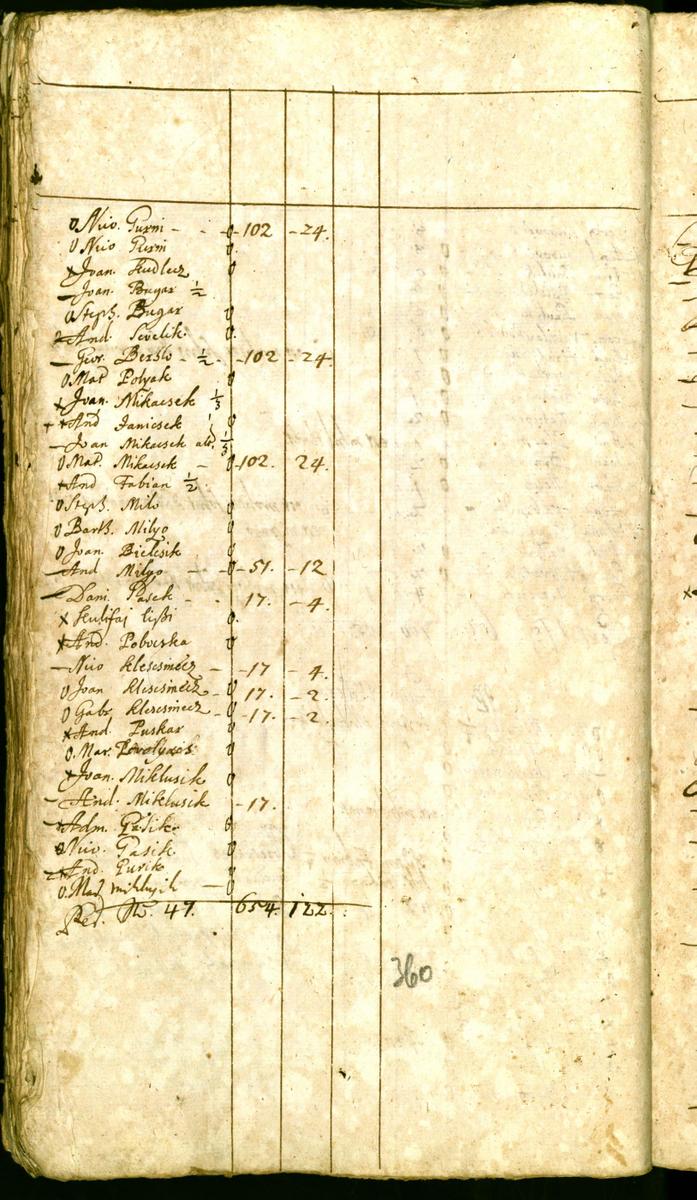 0 Nico Gurin - - - 0 - 102 - 24.
0 Nico Gurin 0
x Joan. Kudlecz 0
- Joan. Bugar ½
0 Steph. Bugar 0
x And. Sevelik. 0
- Geor. Bersko - ½ - - 102 - 24.
0 Mat Polyak 0
x Joan. Mikacsek ⅓
x x And Janicsek 0
- Joan Mikacsek alt. ⅓
0 Mat. Mikacsek - 0 - 102. 24.
x And Fabian ½
0 Steph. Milo 0
0 Barth. Milyo 0
0 Joan. Bielcsik 0
- And Milyo - - 0 - 51. - 12
- Dani. Pasek - - 17. - 4.
x 0.
x And. Poboczka 0
- Nico Klescsinecz - - 17 - 4.
0 Joan Klescsinecz - 0 - 17. - 2.
0 Gabr Klescsinecz - 0 - 17. - 2.
x And. Puskar 0
0. Mar. 0
x Joan. Miklusik 0
- And. Miklusik - 17.
x Adm. Gasik 0
0 Nico. Gasik 0
x And. Gurik 0
0. Mat - 0
47. 654. 122.
360